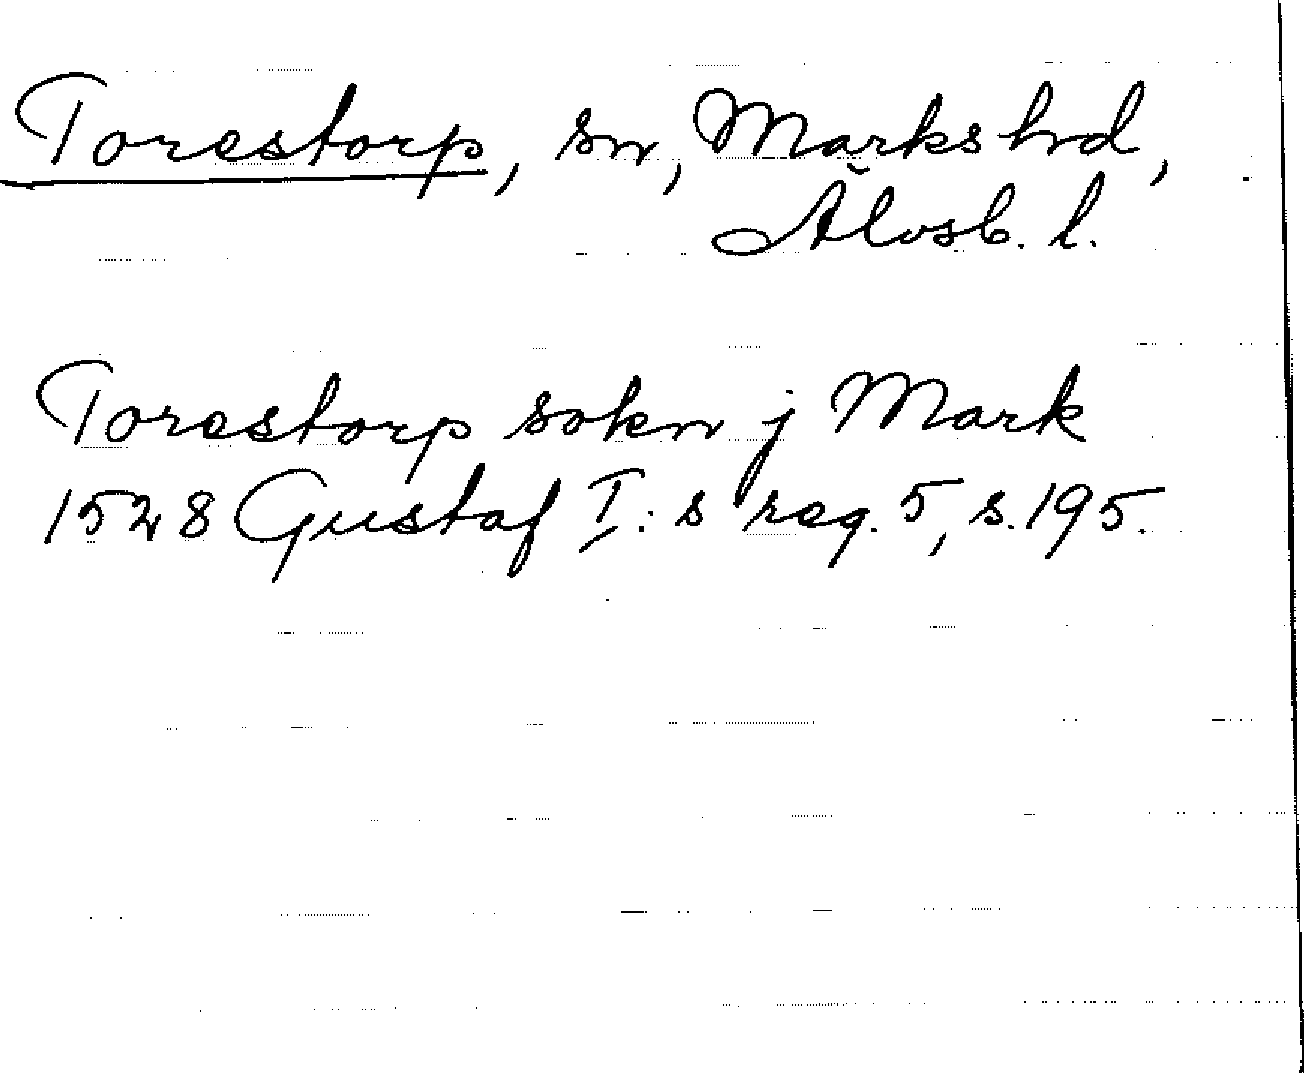 Torestorp, sn, Marks hd,
Älvsb. l.
Torestorp sokn j Mark
1528 Gustaf I:s reg. 5, s. 195.